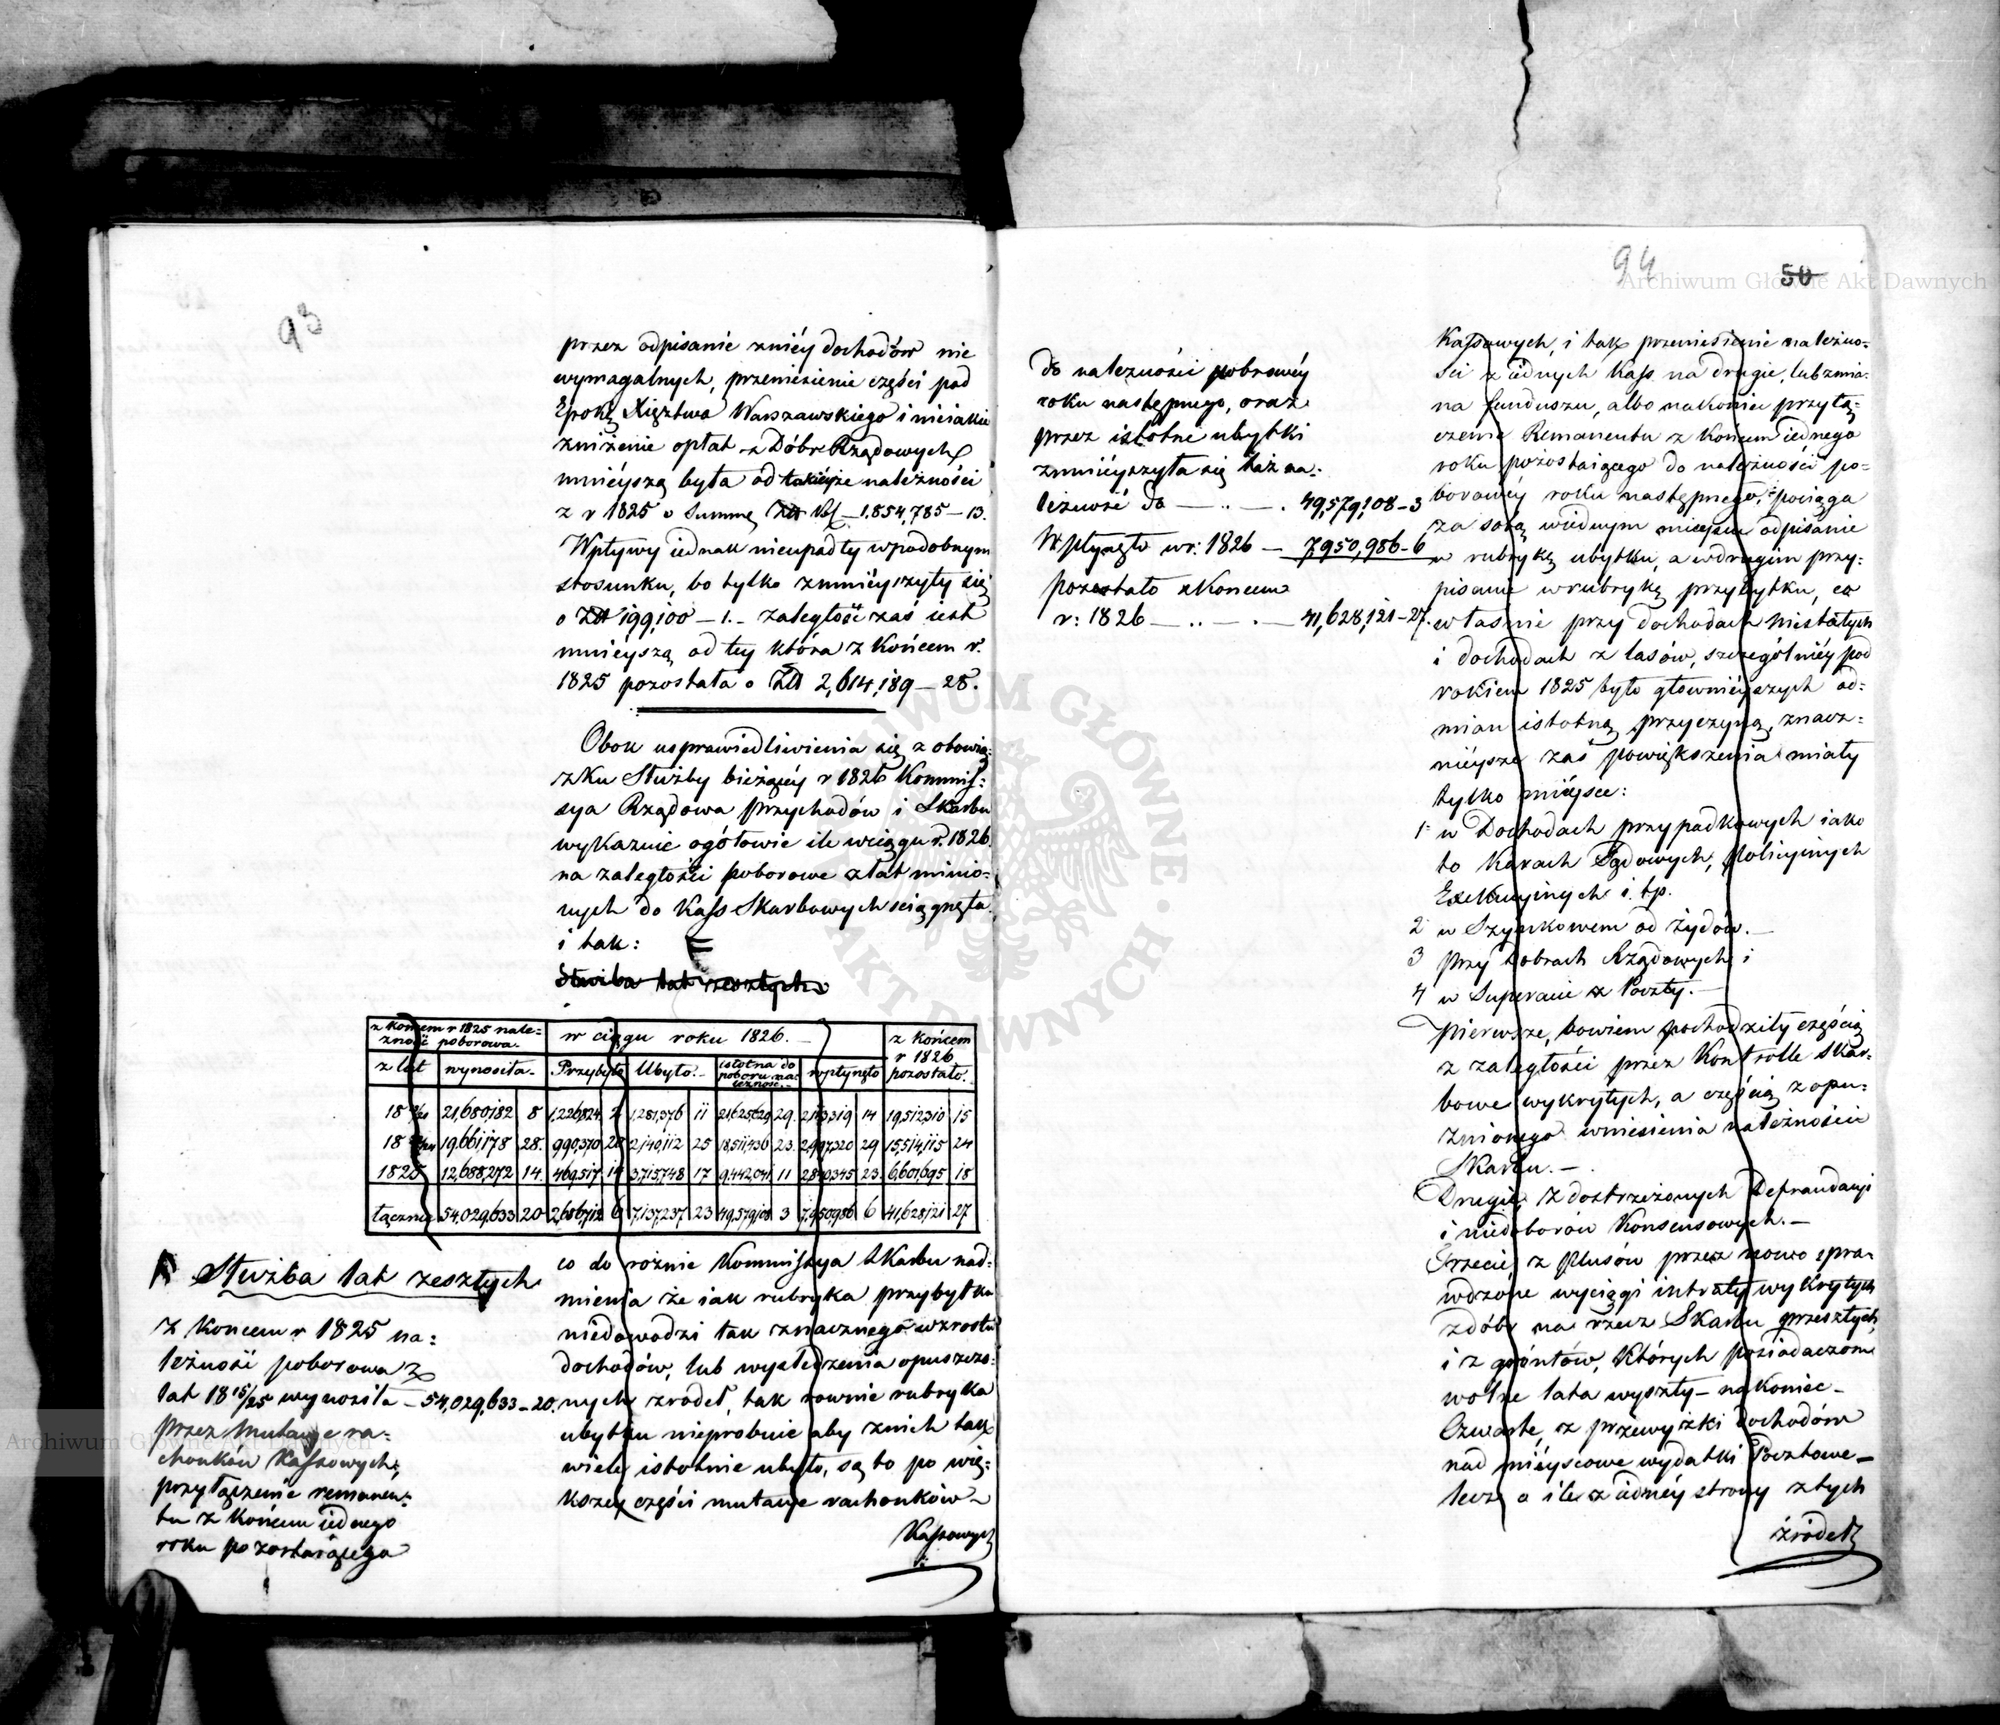 93
przez odpisanie zniéy dochodów nie
wymagalnych, przeniesienie części pod
Epokę Xięztwa Warszawskiego i nieiakie
zniżenie opłat z Dóbr Rządowych
mnieyszą była od takieyże należności
z r 1825 o Summę Złł 1.854,785 – 13.
Wpływy iednak nieupadły wpodobnym
stosunku, bo tylko zmnieyszyły się
o Złł 199,100 – 1. – zaległość zaś iest
mnieyszą od tey która z Końcem r.
1825 pozostała o Złł 2,614,189 – 28.
Obok usprawiedliwienia się z obowią:
zku Służby bieżącéy r 1826 Kommis:
sya Rządowa Przychodów i Skarbu
wykazuie ogółowie ile wciągu r. 1826.
na zaległości poborowe z lat minio:
nych do Kass Skarbowych ściągnęła
i tak:
Służba lat zeszłych
z końcem r 1825 nale:
żność poborowa.
w ciągu roku 1826.
z końcem
r 1826
pozostało.
z lat wynosiła. Przybyło Ubyło. istotna do poboru należność. wpłynęło
21,680,182 8 1,226,824 2 1,281,376 11 21,625,629 29. 2,113,319 14 19,512,310 15
19,661,178 28. 990,370 20 2,140,112 25 18,511,436 23. 2,997,320 29 15,514,115 24
1825 12,688,272 14. 469,517 14 3,715,748 17 9,442,041 11 2,840,345 23. 6,601,695 18
łącznie 54,029,633 20 2,686,712 6 7,137,237 23 49,579,108 3 7,950,986 6 41,628,121 27
Służba lat zeszłych
Z Koncem r 1825 na:
leżność poborowa z
lat 18 15/25 wynosiła – 54,029,633 – 20.
przez mutacye ra:
chunków Kassowych,
przyłączenie remanen:
tu z Końcem iednego
roku pozostaiącego
co do roźnic Kommissya Skarbu nad:
mienia że iak rubryka przybytku
niedowodzi tak znacznego wzrostu
dochodów, lub wyśledzenia opuszczo:
nych zrodeł, tak rownie rubryka
ubytku nieprobuie aby znich tak
wiele istotnie ubyło, są to po wię:
kszey części mutacye rachunków
Kassowych
94
50
do należności poborowéy
roku następnego, oraz
przez istotne ubytki
zmnieyszyła się taż na:
leżność do — .. — . 49,579,108 – 3
Wpłynęło w r: 1826 — 7,950,986 – 6
pozostało z Koncem
r: 1826 — .. — . — 41,628,121 – 27.
Kassowych, i tak przeniesienie należno:
ści z iednych Kass na drugie, lub zmia:
na funduszu, albo nakoniec przyłą:
czenie Remanentu z Końcem iednego
roku pozostaiącego do należności po:
borowéy roku następnego, pociąga
za sobą w iednym mieyscu odpisanie
w rubrykę ubytku, a wdrugim przy:
pisanie w rubrykę przybytku, co
właśnie przy dochodach niestałych
i dochodach z lasów, szczególniéy pod
rokiem 1825 było głownieyszych od:
mian istotną przyczyną, znacz:
nieysze zaś powiększenia miały
tylko mieysce:
1 w Dochodach przypadkowych iako
to Karach Sądowych, Policyinych
Exekucyinych i. t.p.
2 w Szynkowem od Żydów. —
3 przy Dobrach Rządowych, i
4 w Superacie z Poczty. —
Pierwsze, bowiem pochodziły częścią
z zaległości przez Kontrolle Skar:
bowe wykrytych, a częścią z opu:
źnionego wniesienia należności
Skarbu. —
Drugie, z dostrzeżonych Defraudacyi
i niedoborów Konsensowych. —
Trzecie, z plusów przez nowo spra:
wdzone wyciągi intraty wykrytych
z dóbr na rzecz Skarbu przeszłych,
i z gróntów, których posiadaczom
wolne lata wyszły – nakoniec –
Czwarte, z przewyżki dochodów
nad mieyscowe wydatki Pocztowe –
lecz o ile z iednéy strony z tych
źródeł